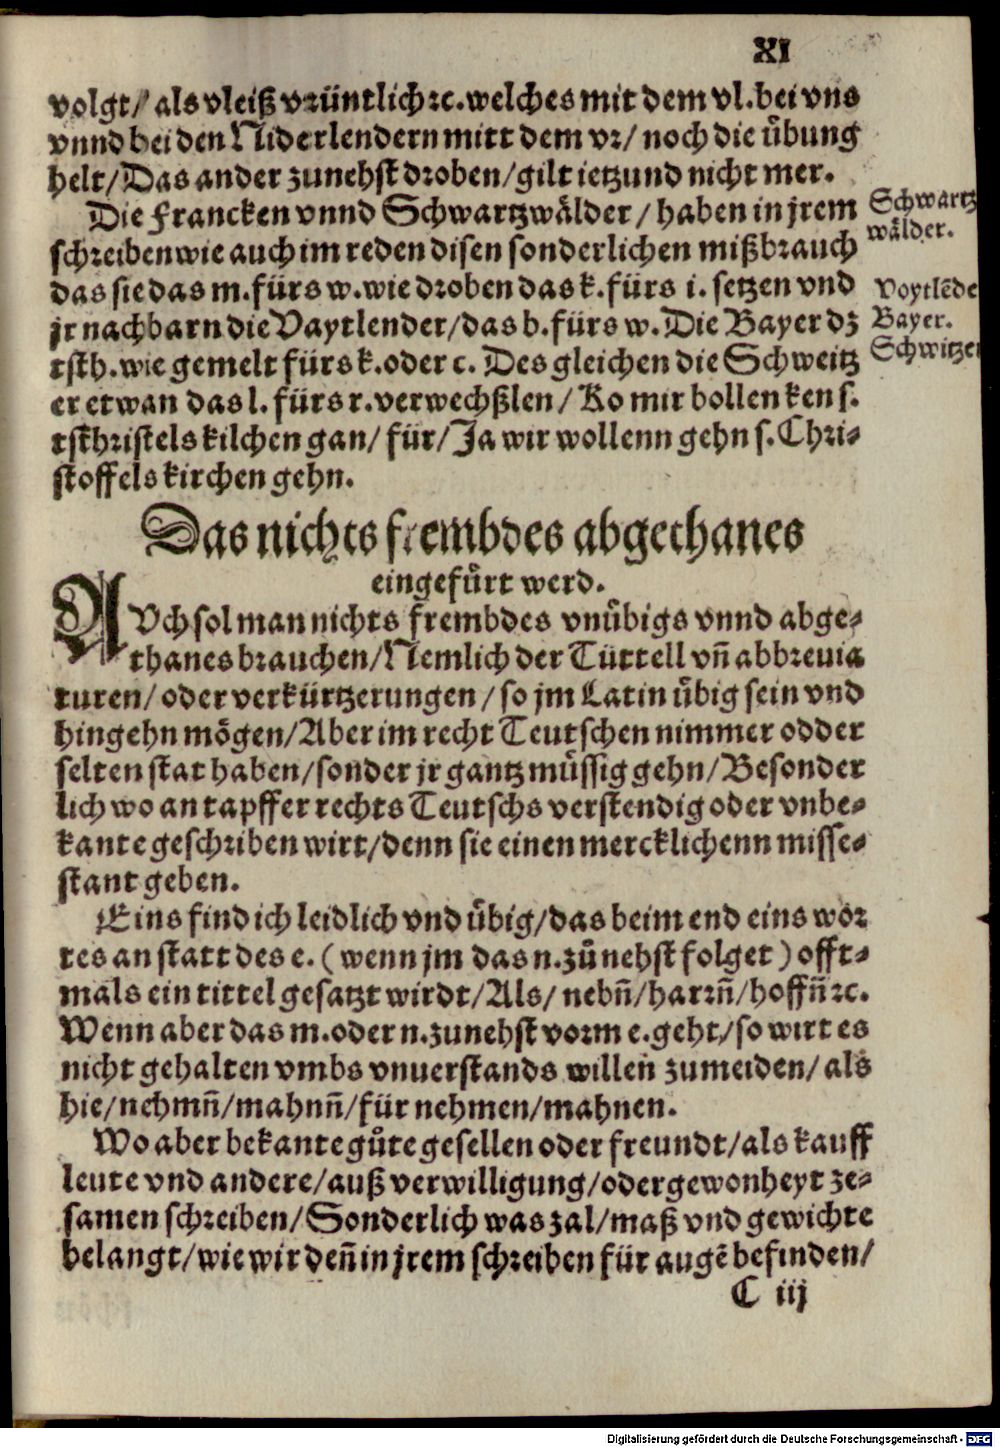 XI
volgt/ als vleiß vrüntlich ꝛc. welches mit dem vl. bei vns
vnnd bei den Niderlendern mitt dem vr/ noch die uͤbung
helt/ Das ander zunehst droben/ gilt ietzund nicht mer.
Die Francken vnnd Schwartzwaͤlder/ haben in jrem
schreiben wie auch im reden disen sonderlichen mißbrauch
das sie das m. fürs w. wie droben das k. fürs i. setzen vnd
jr nachbarn die Vaytlender/ das b. fürs w. Die Bayer dz
tskh. wie gemelt fürs k. oder c. Des gleichen die Schweitz
er etwan das l. fürs r. verwechßlen/ Ko mir bollen ken s.
tskhristels kilchen gan/ für/ Ja wir wollenn gehn s. Chri-
stoffels kirchen gehn.
Schwartz
waͤlder.
Voytlēde
Bayer.
Schwitzer
Das nichts frembdes abgethanes
eingefuͤrt werd.
AVch sol man nichts frembdes vnuͤbigs vnnd abge-
thanes brauchen/ Nemlich der Tüttell vn̄ abbreuia
turen/ oder verkürtzerungen/ so jm Latin uͤbig sein vnd
hingehn moͤgen/ Aber im recht Teutschen nimmer odder
selten stat haben/ sonder jr gantz muͤssig gehn/ Besonder
lich wo an tapffer rechts Teutschs verstendig oder vnbe-
kante geschriben wirt/ denn sie einen mercklichenn misse-
stant geben.
Eins find ich leidlich vnd uͤbig/ das beim end eins wor
tes an statt des e. (wenn jm das n. zuͦ nehst folget) offt-
mals ein tittel gesatzt wirdt/ Als/ nebn̄/ harrn̄/ hoffn̄ ꝛc.
Wenn aber das m. oder n. zunehst vorm e. geht/ so wirt es
nicht gehalten vmbs vnuerstands willen zumeiden/ als
hie/ nehmn̄/ mahnn̄/ für nehmen/ mahnen.
Wo aber bekante guͦte gesellen oder freundt/ als kauff
leute vnd andere/ auß verwilligung/ oder gewonheyt ze-
samen schreiben/ Sonderlich was zal/ maß vnd gewichte
belangt/ wie wir den̄ in jrem schreiben für augē befinden/
C iij
Digitalisierung gefördert durch die Deutsche Forschungsgemeinschaft - DFG